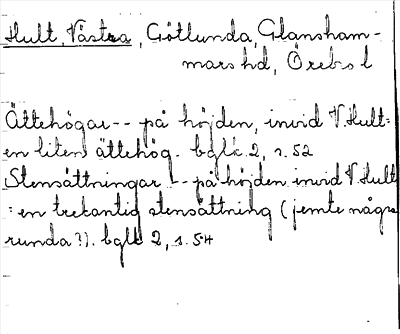 Hult, Västra, Götlunda, Glansham-
mars hd, Örebro l
Ättehögar -- på höjden, invid V. Hult =
en liten ättehög. bglk 2, s. 52
Stensättningar -- på höjden invid V. Hult
= en trekantig stensättning (jemte några
runda?). bglk 2, s. 54